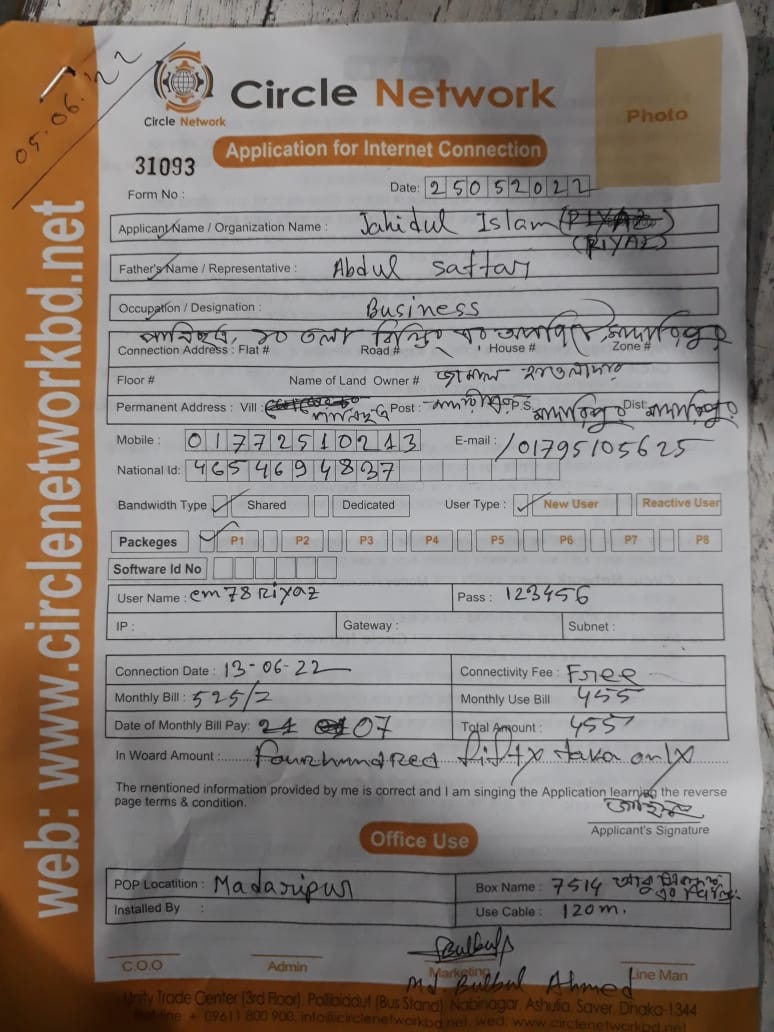 05.06.'22
Circle Network
Circle Network
Photo
Application for Internet Connection
31093
Form No :
Date: 25052022
Applicant Name / Organization Name : Jahidul Islam
(RIYAZ)
Father's Name / Representative : Abdul Sattar
Occupation / Designation : Business
১০ তলা
Connection Address : Flat # Road # House # Zone #
Floor # Name of Land Owner #
Permanent Address : Vill : Post : P.S Dist:
Mobile : 01772510213 E-mail : /01795105625
National Id: 4654694837
Bandwidth Type Shared Dedicated User Type : New User Reactive User
Packeges P1 P2 P3 P4 P5 P6 P7 P8
Software Id No
User Name : em78riyaz Pass : 123456
IP : Gateway : Subnet :
Connection Date : 13-06-22 Connectivity Fee : Free
Monthly Bill : 525/= Monthly Use Bill 455
Date of Monthly Bill Pay: 07 Total Amount : 455
In Woard Amount : Fourhundred fifty taka only
The mentioned information provided by me is correct and I am singing the Application learning the reverse
page terms & condition.
Applicant's Signature
Office Use
POP Locatition : Madaripur Box Name : 7514
Installed By : Use Cable : 120m.
Bulbul
C.O.O Admin Marketing Line Man
Md. Bulbul Ahmed
Unity Trade Center (3rd Floor), Pollibiddut (Bus Stand), Nabinagar, Ashulia, Saver, Dhaka-1344
Hot-line: + 09611 800 900, info@circlenetworkbd.net, wed: www.circlenetworkbd.net
web: www.circlenetworkbd.net